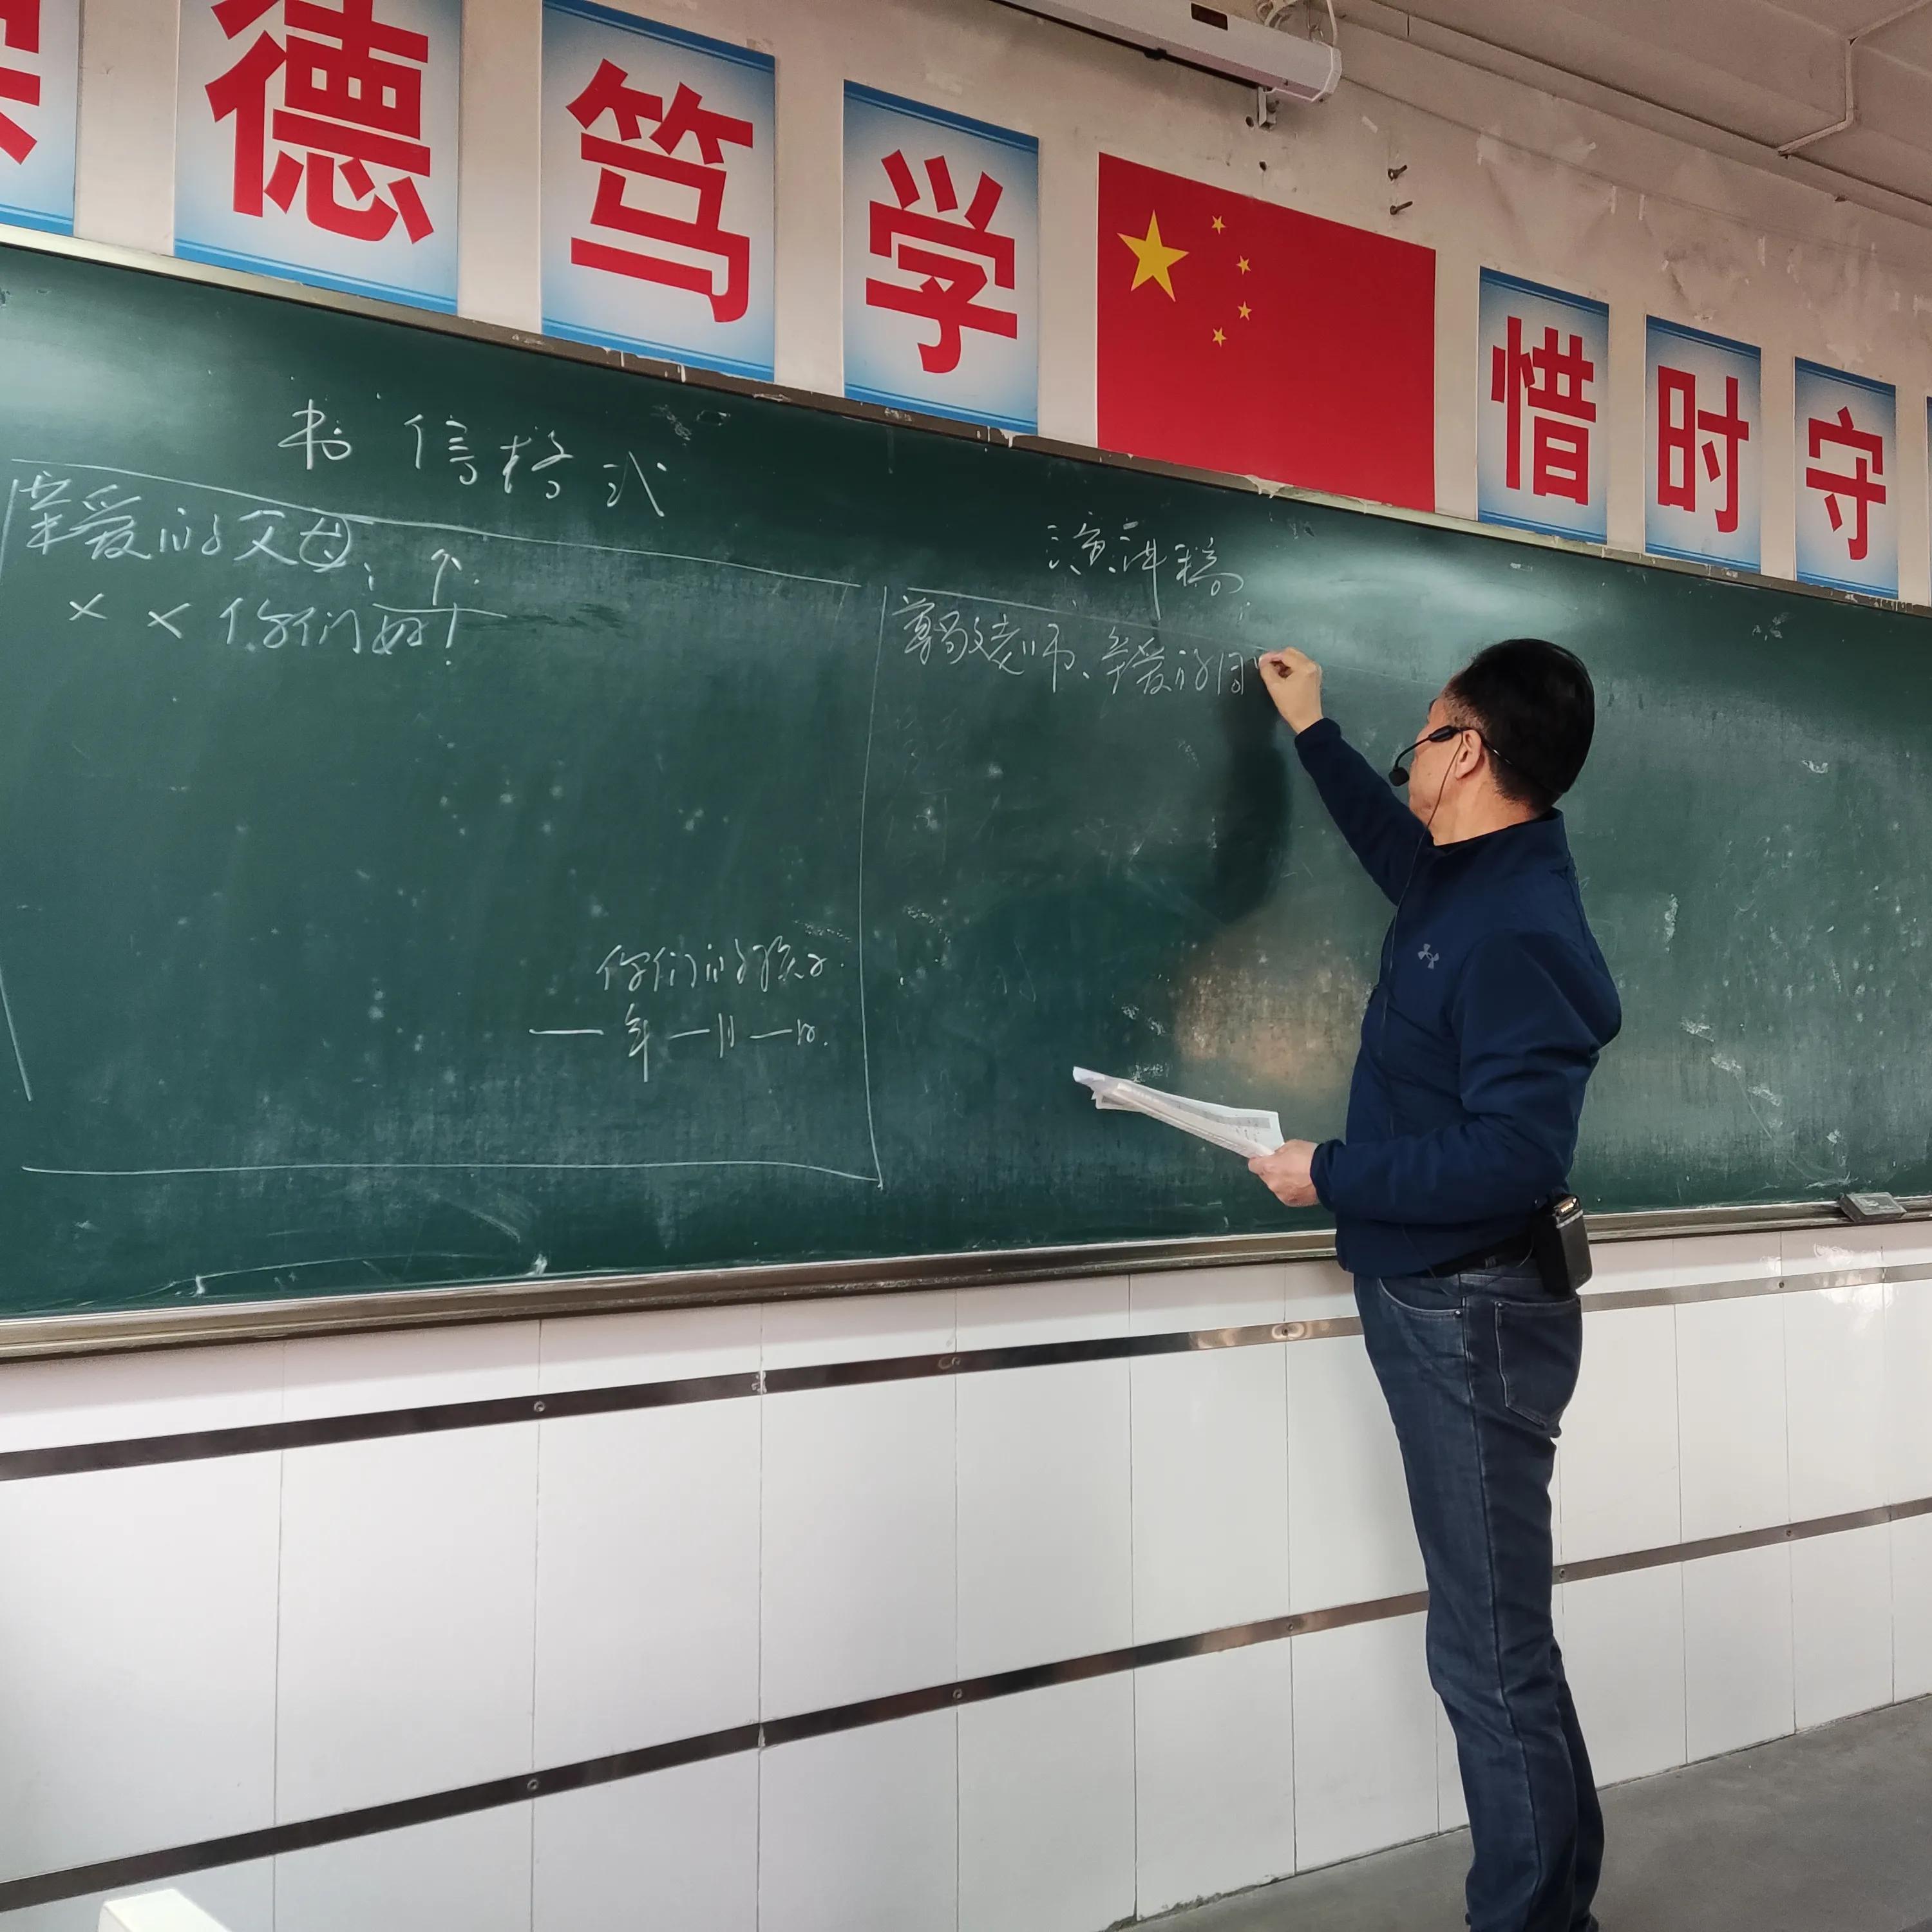 德笃学 惜时守
书信格式
亲爱的父母:
× × 你们好!
你们的孩子.
— 年 — 月 — 日.
演讲稿
尊敬老师、亲爱的同